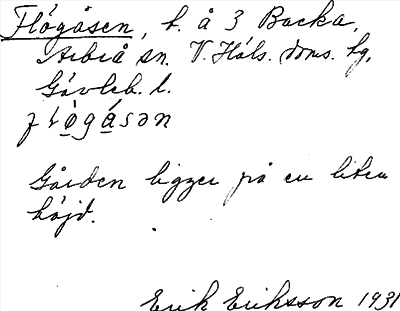 Flógåsen, h. å 3 Backa,
Arbrå sn. V. Häls. doms. hg,
Gävleb. l.
flògásən
Gården ligger på en liten
höjd.
Erik Eriksson 1931